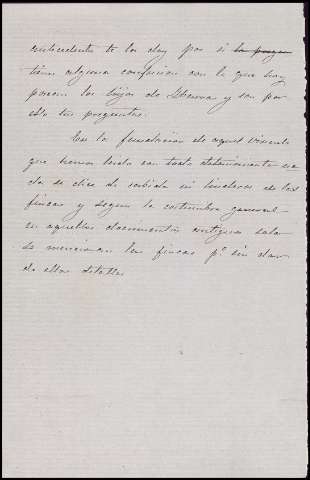 antecedente te lo doy por si la pregun
tiene alguna conexion con la que hoy
poseen los hijos de Ibarra y son por
ello tus preguntas.
En la fundacion de aquel vinculo
que hemos leido con todo detenimiento na
da se dice de cabida ni linderos de las
fincas y segun la costumbre general
en aquellos documentos antiguos solo
se mencionan las fincas pº sin dar
de ellas detalle